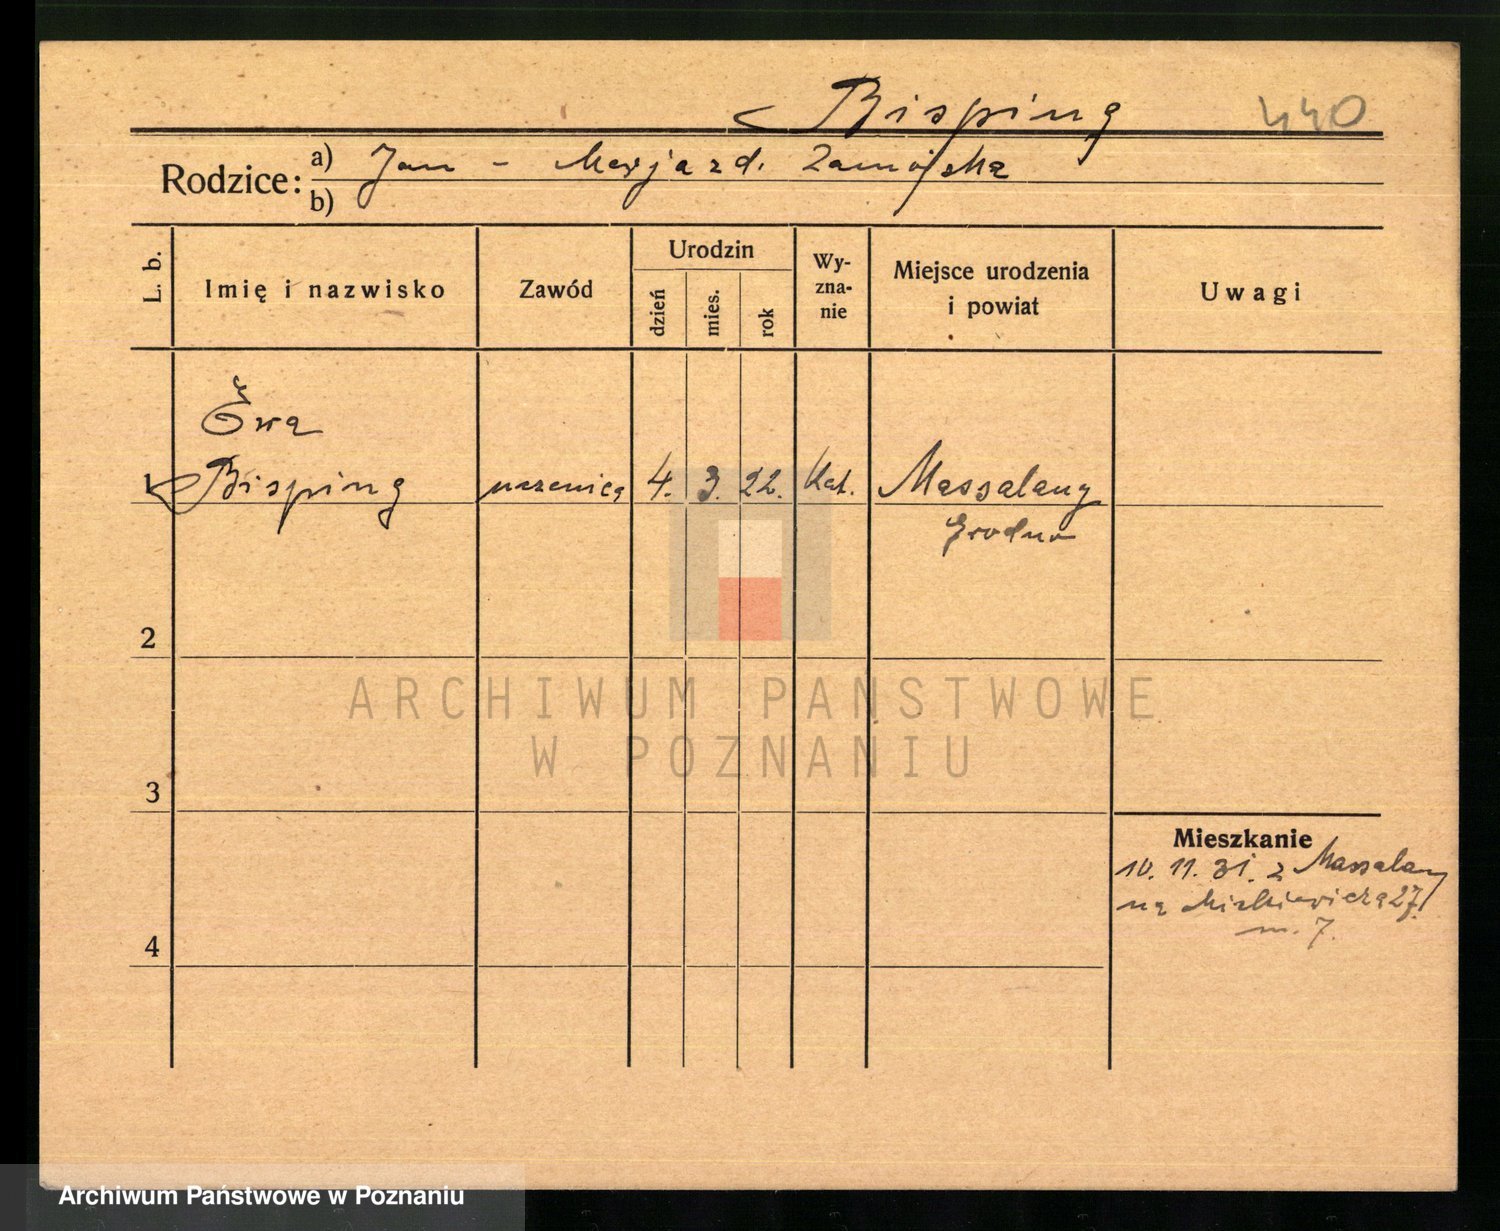 Bisping 440
Rodzice: a) Jan - Marja z d. Zamójska
b)
L. b. Imię i nazwisko Zawód Urodzin dzień mies. rok Wy-zna-nie Miejsce urodzenia i powiat Uwagi
Ewa
1 Bisping uczenica 4. 3. 22. Kat. Massalany
Grodno
2
ARCHIWUM PAŃSTWOWE
W POZNANIU
3
Mieszkanie
10. 11. 31. z Massalany
na Mickiewicza 27
m. 7.
4
Archiwum Państwowe w Poznaniu